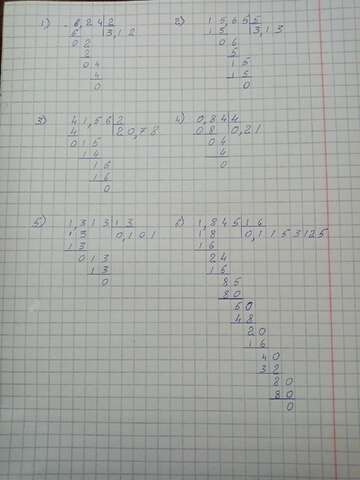 1) 6,24 2
6 3,12
02
2
04
4
0
2) 15,65 5
15 3,13
06
5
15
15
0
3) 41,56 2
4 20,78
015
14
16
16
0
4) 0,84 4
08 0,21
04
4
0
5) 1,313 13
13 0,101
13
013
13
0
6) 1,845 16
18 0,1153125
16
24
16
85
80
50
48
20
16
40
32
80
80
0